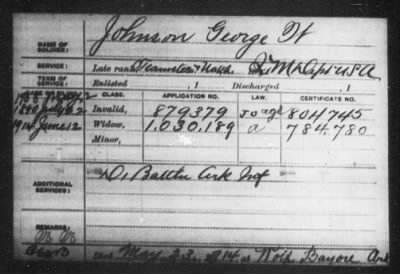 NAME OF SOLDIER: Johnson George W
SERVICE: Late rank, Teamster, 2 M. Dept U S A
TERM OF SERVICE: Enlisted , 1 Discharged , 1
DATE OF FILING. CLASS. APPLICATION NO. LAW. CERTIFICATE NO.
Invalid, 879379 804745
1914 June 12 Widow, 1.030,189 a 784,780
Minor,
ADDITIONAL SERVICES: D, Ark Inf
REMARKS:
Died May 23, 1914 at Wolf Bayou Ark